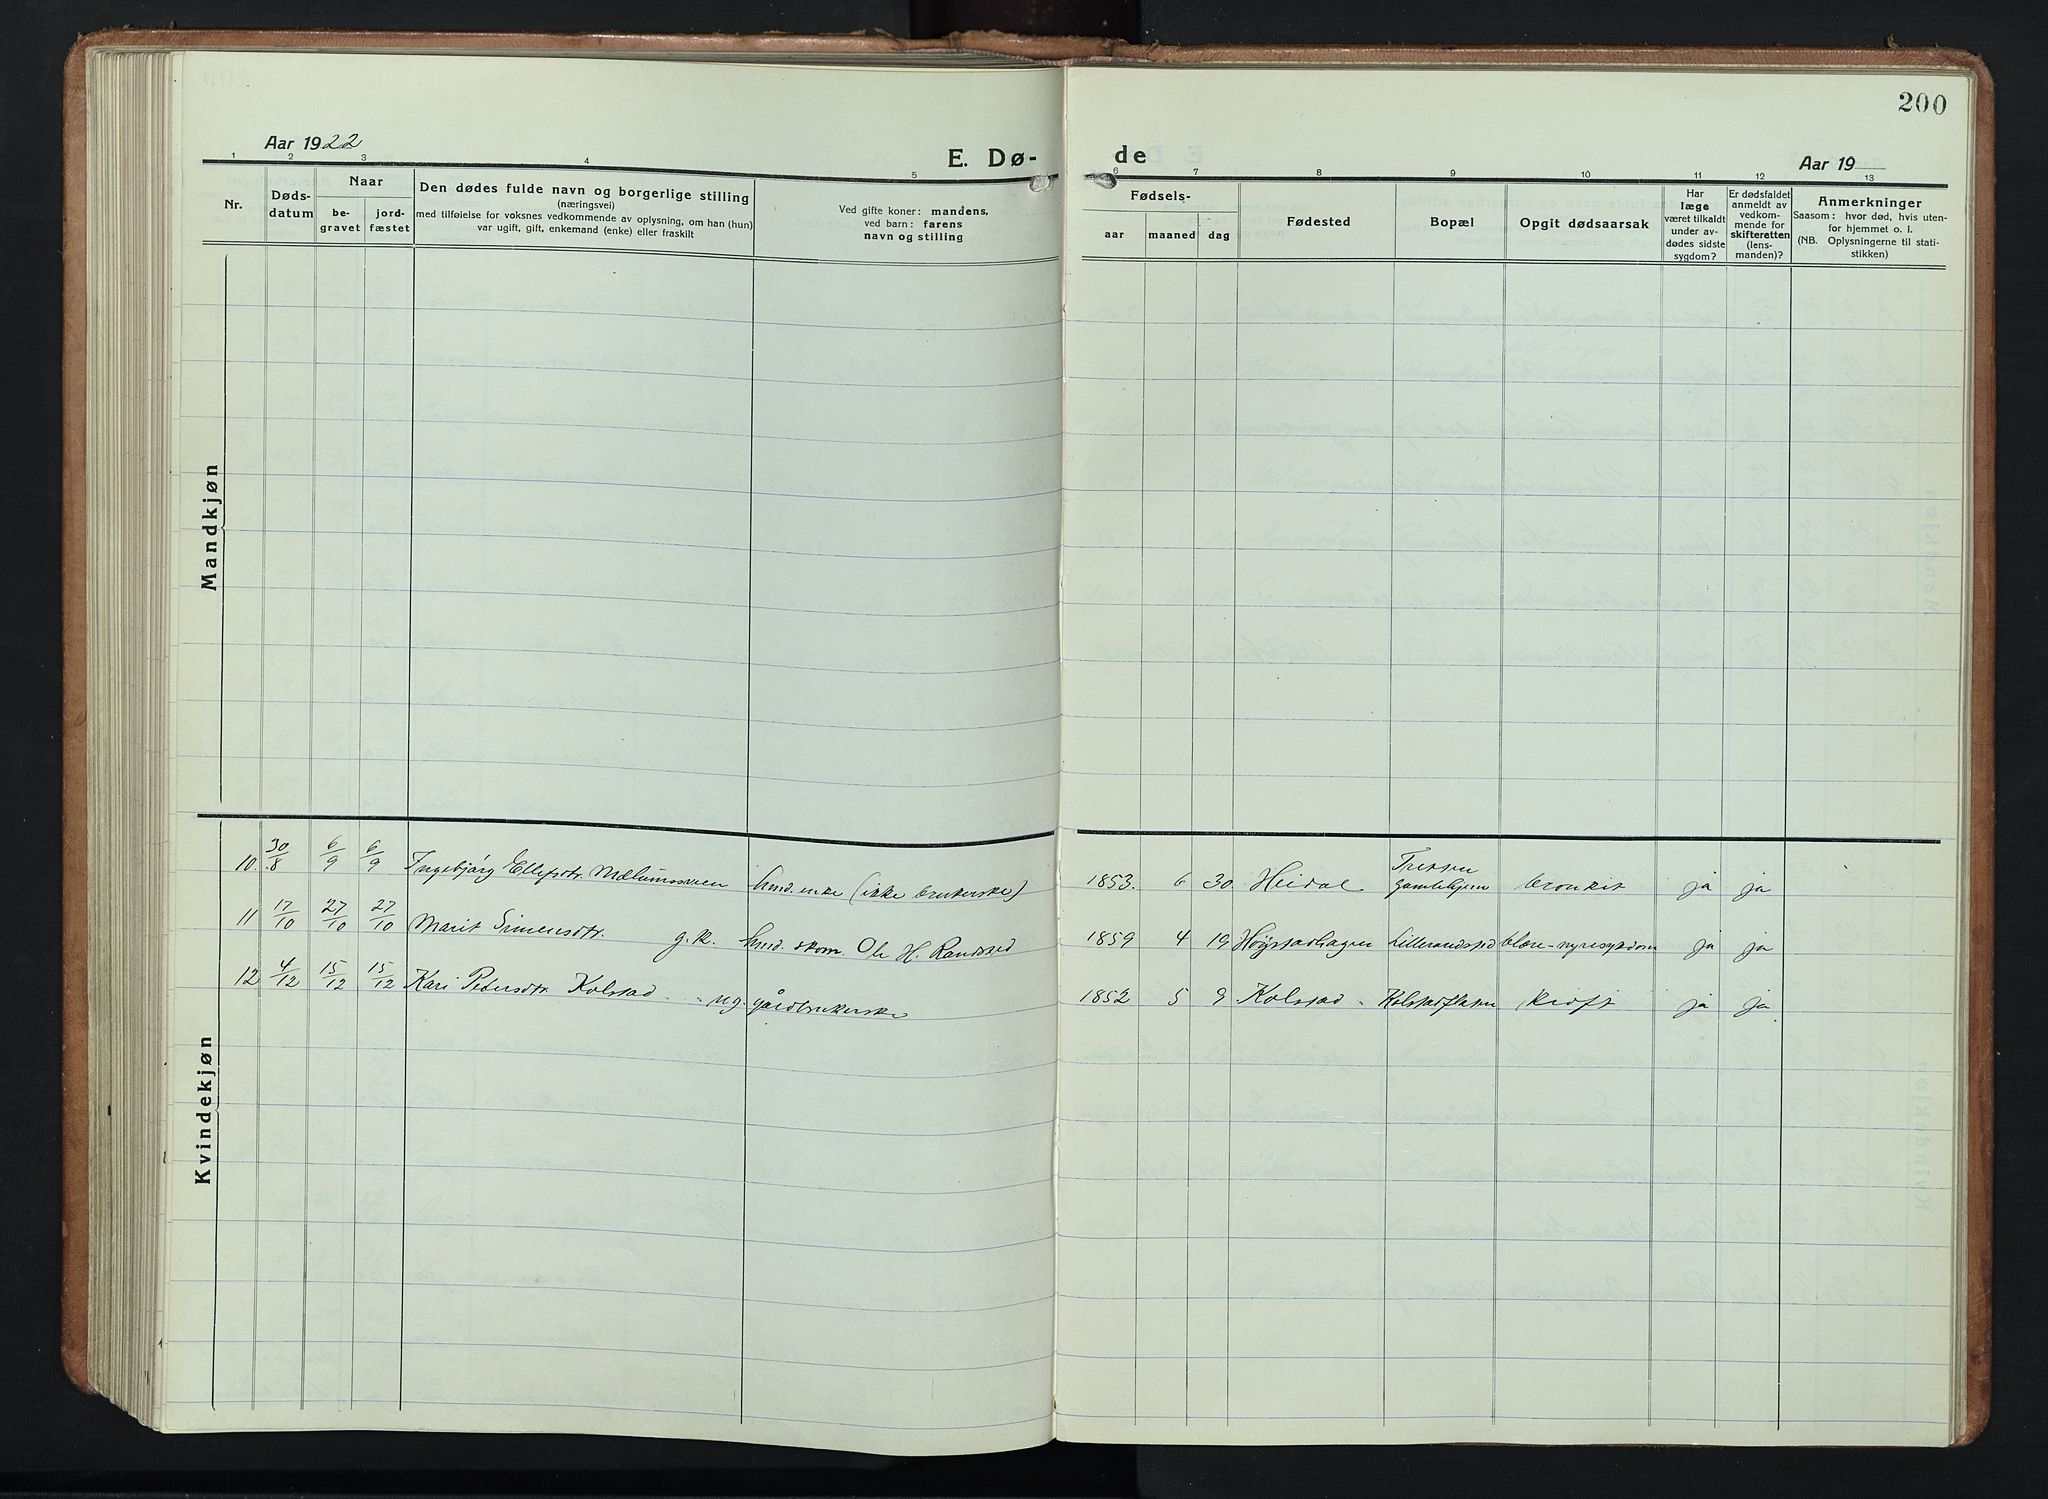 200
Aar 1922
E. Dø-
de
Aar 19
1 2 3 4 5 6 7 8 9 10 11 12 13
Nr.
Døds-
datum
Naar
be-
gravet
jord-
fæstet
Den dødes fulde navn og borgerlige stilling
(næringsvei)
med tilføielse for voksnes vedkommende av oplysning, om han (hun)
var ugift, gift, enkemand (enke) eller fraskilt
Ved gifte koner: mandens,
ved barn: farens
navn og stilling
Fødsels-
aar maaned dag
Fødested
Bopæl
Opgit dødsaarsak
Har
læge
været tilkaldt
under av-
dødes sidste
sygdom?
Er dødsfaldet
anmeldt av
vedkom-
mende for
skifteretten
(lens-
manden)?
Anmerkninger
Saasom: hvor død, hvis uten-
for hjemmet o. l.
(NB. Oplysningerne til stati-
stikken)
Mandkjøn
Kvindekjøn
10. 30/8 6/9 6/9 Ingebjørg Ellefsdtr. Mælumsveen hmd. enke (ikke brukerske) 1853. 6 30. Heidal gamlehjem bronkit ja ja
11 17/10 27/10 27/10 Marit Simensdtr. g.k. hmd. skom. Ole H. Randsed 1859 4 19 Høystadhagen Lillerandsed blære-nyresykdom ja ja
12 4/12 15/12 15/12 Kari Petersdtr. Kolstad ug. gårdbrukerske 1852 5 9 Kolstad Kolstadflaten kræft ja ja